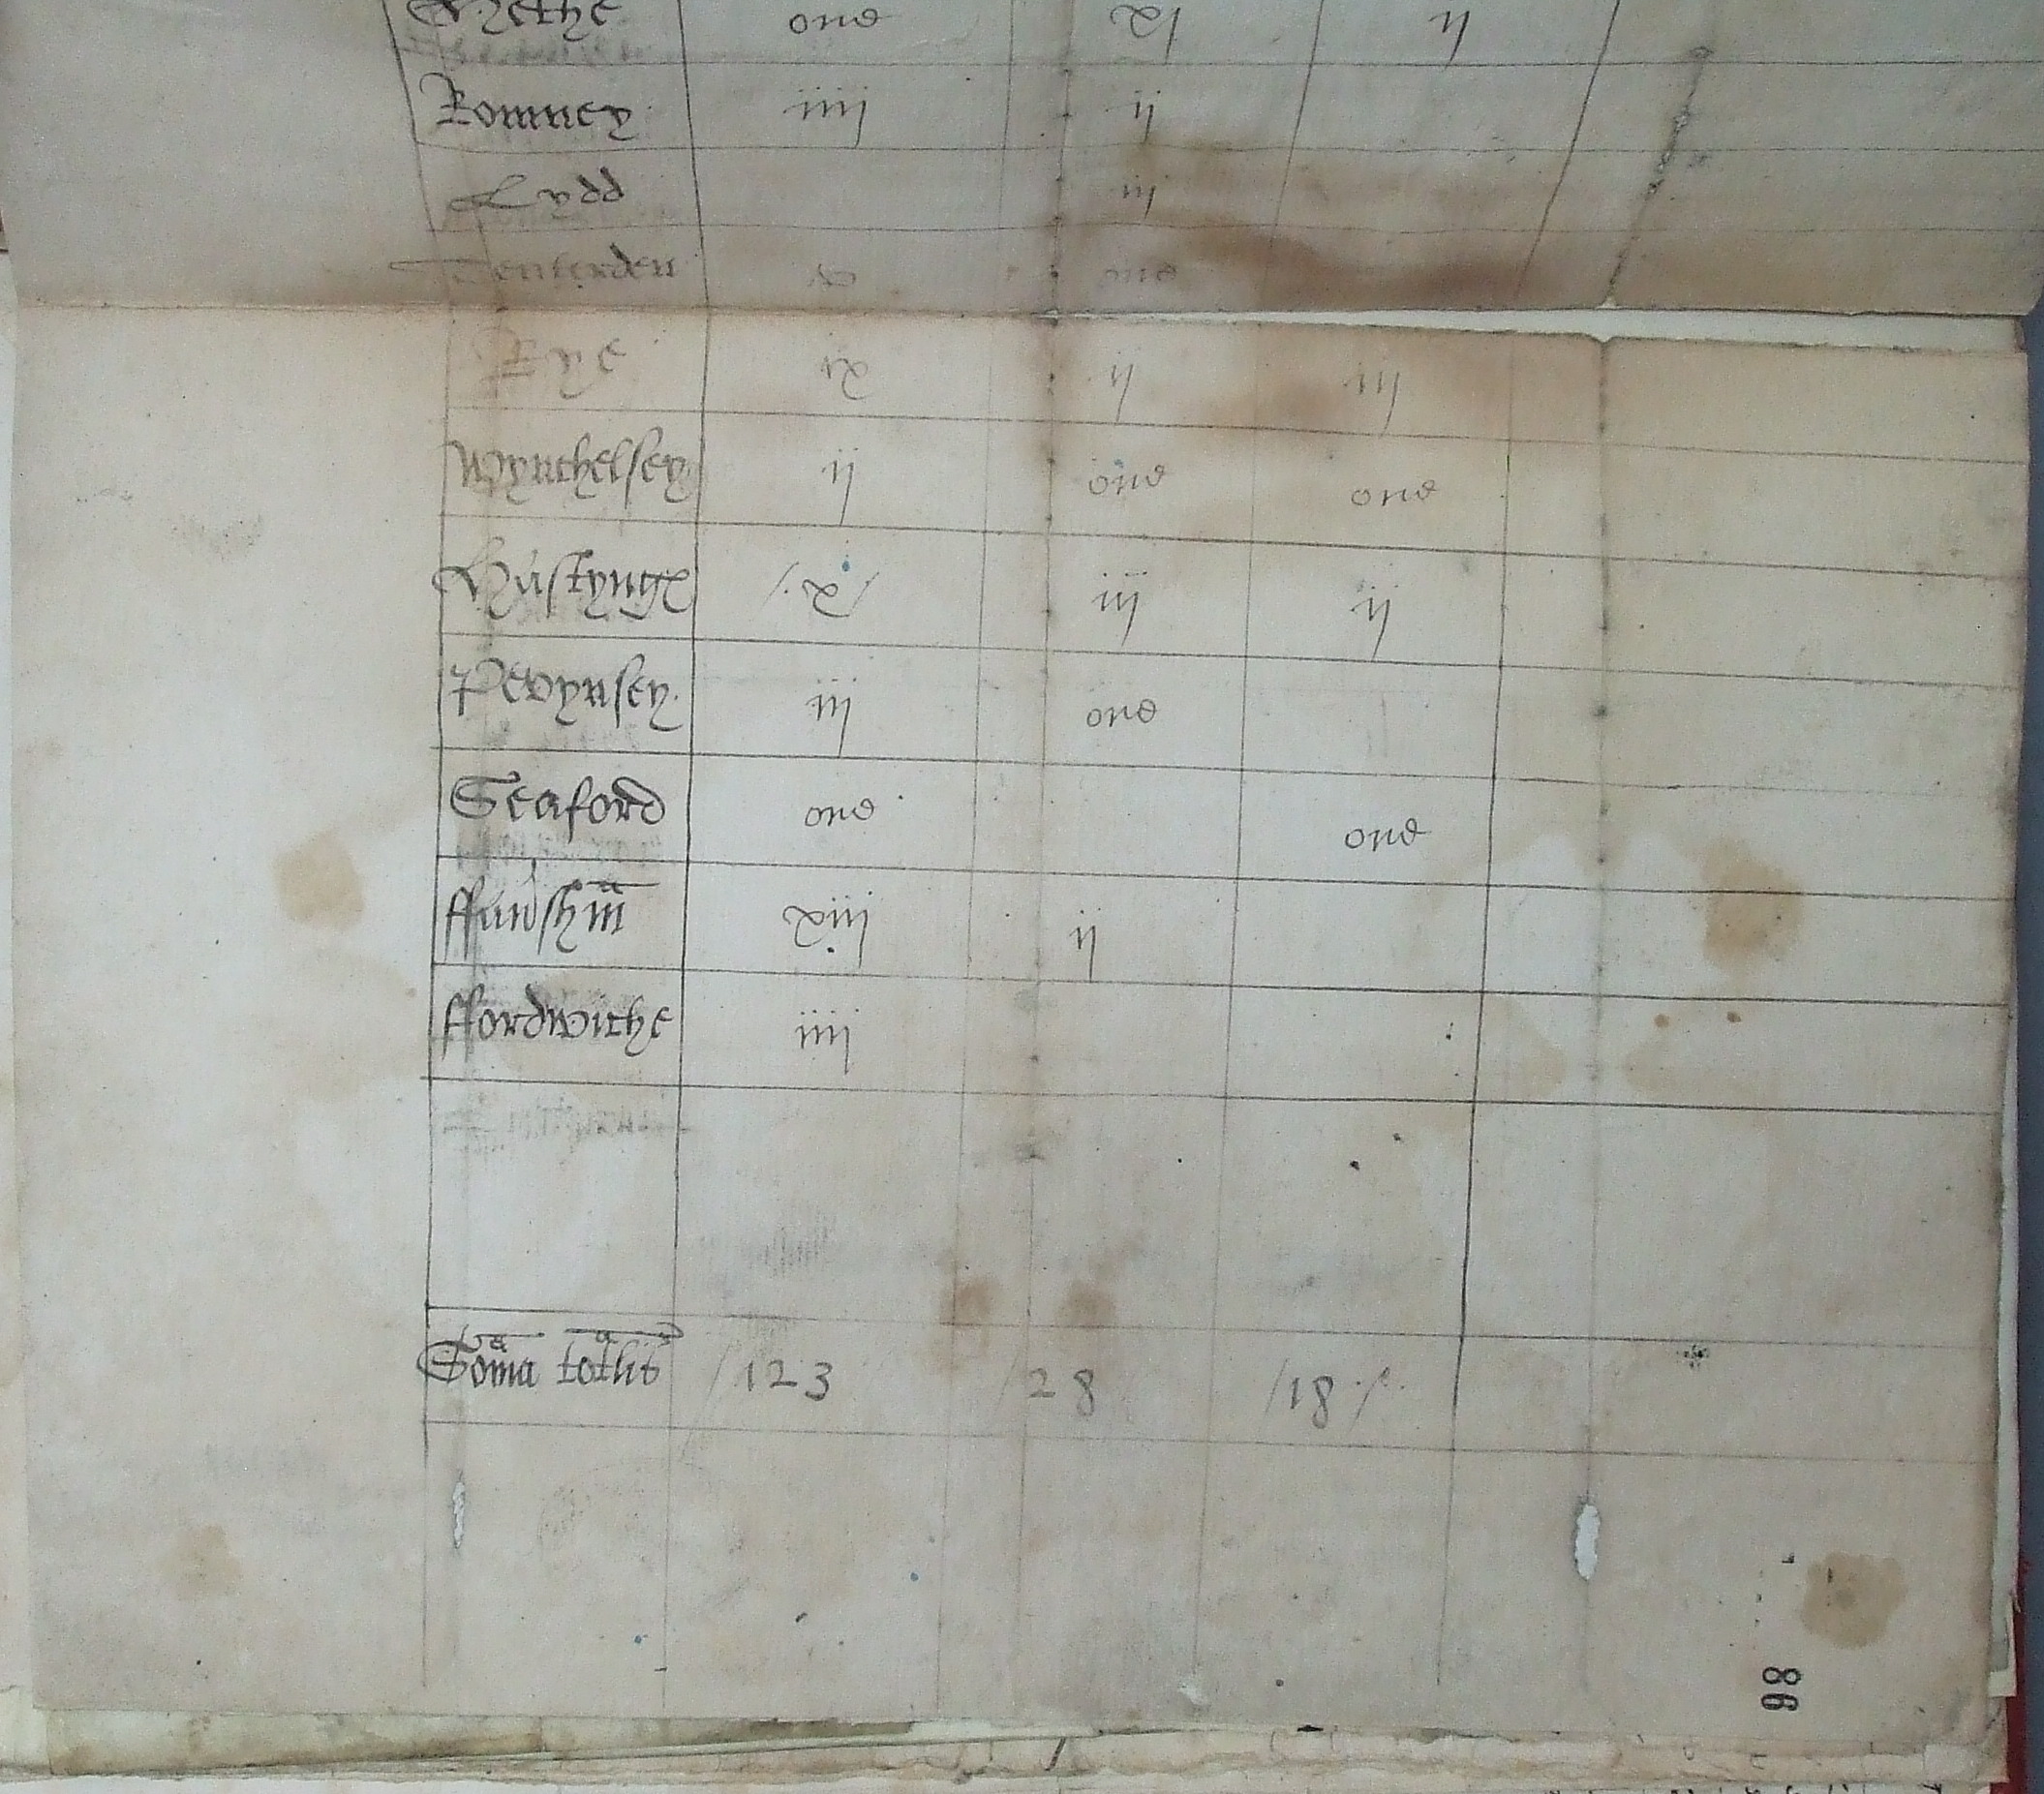 Hethe one xj ij
Romney iiij ij
Lydd iij
Tenterden v one
Rye ix ij iij
Wynchelsey ij one one
Hastynge /.x/ iij ij
Pevynsey. iij one
Seaford one one
ffaushm xiij ij
ffordwiche iiij
Soma totlis /123 /28 /18 ./.
86